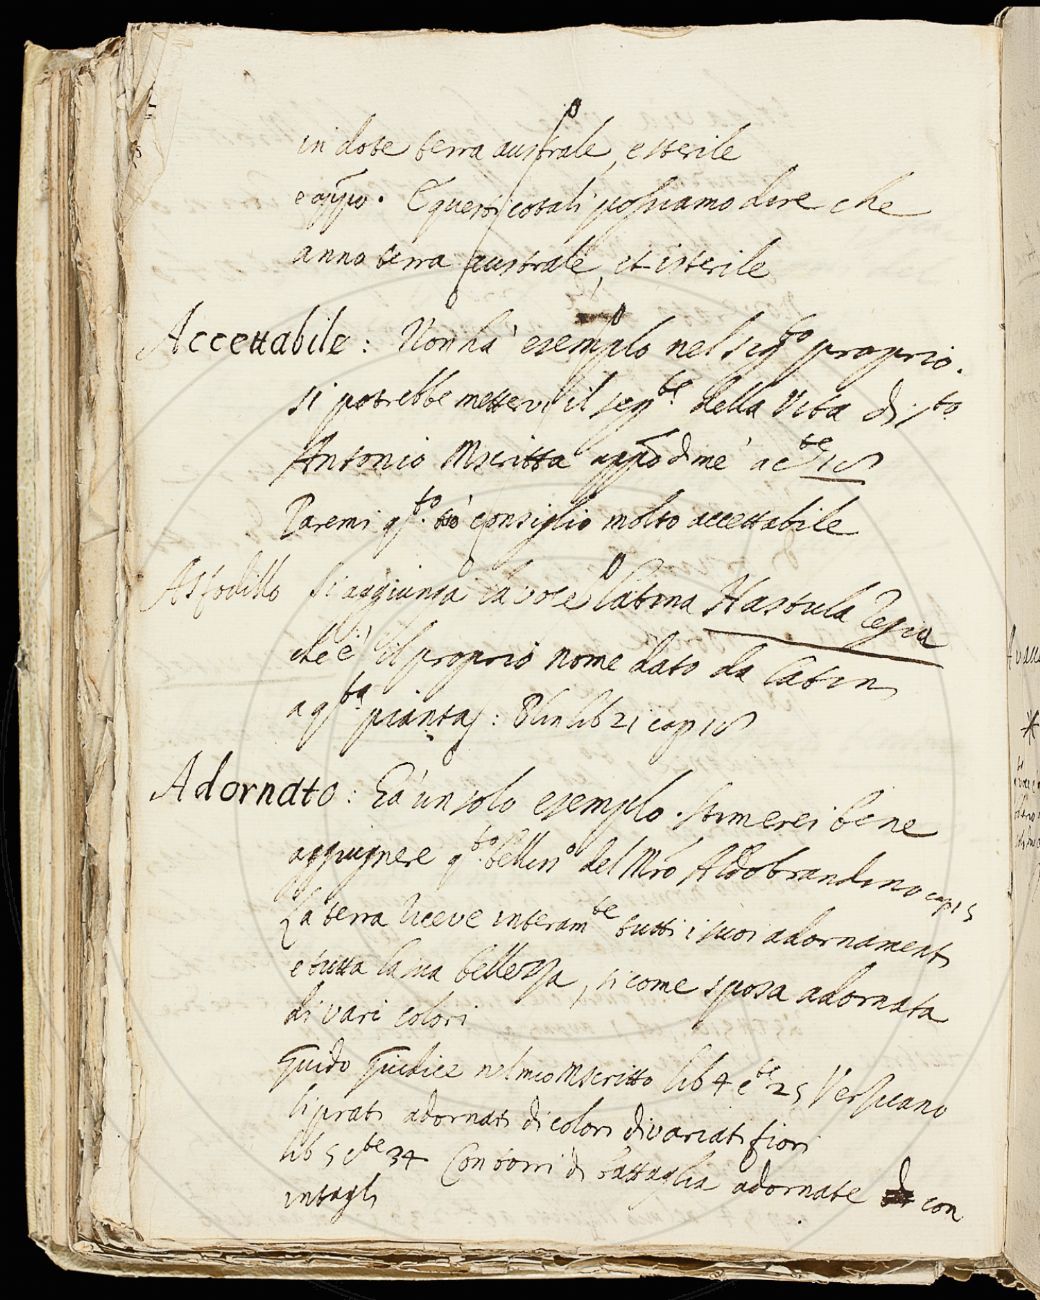 in dote terra australe, e sterile
e appo. E questi cotali possiamo dire che
anno terra australe, et isterile
Accettabile: Non ha esemplo nel sig.to proprio.
si potrebbe mettervi il seg.te della Vita di s.to
Antonio Mscritta appo di me a c.te 18
Paremi q.to consiglio molto accettabile
Asfodillo Si aggiunga la voce latina Hastula Regia
che è il proprio nome dato da Latini
a q.ta pianta: Plin lib 21 cap 18
Adornato: Ea un solo esemplo. stimerei bene
aggiugnere q.to belliss.o del Mro Aldobrandino cap 15
La terra riceve interam.te tutti i suoi adornamenti
e tutta la sua bellezza, sicome sposa adornata
di vari colori
Guido Giudice nel mio Mscritto lib 4 c.te 25 Verzicano
li prati adornati di colori di variati fiori
lib 5 c.te 34 Con torri di battaglia adornate con
intagli